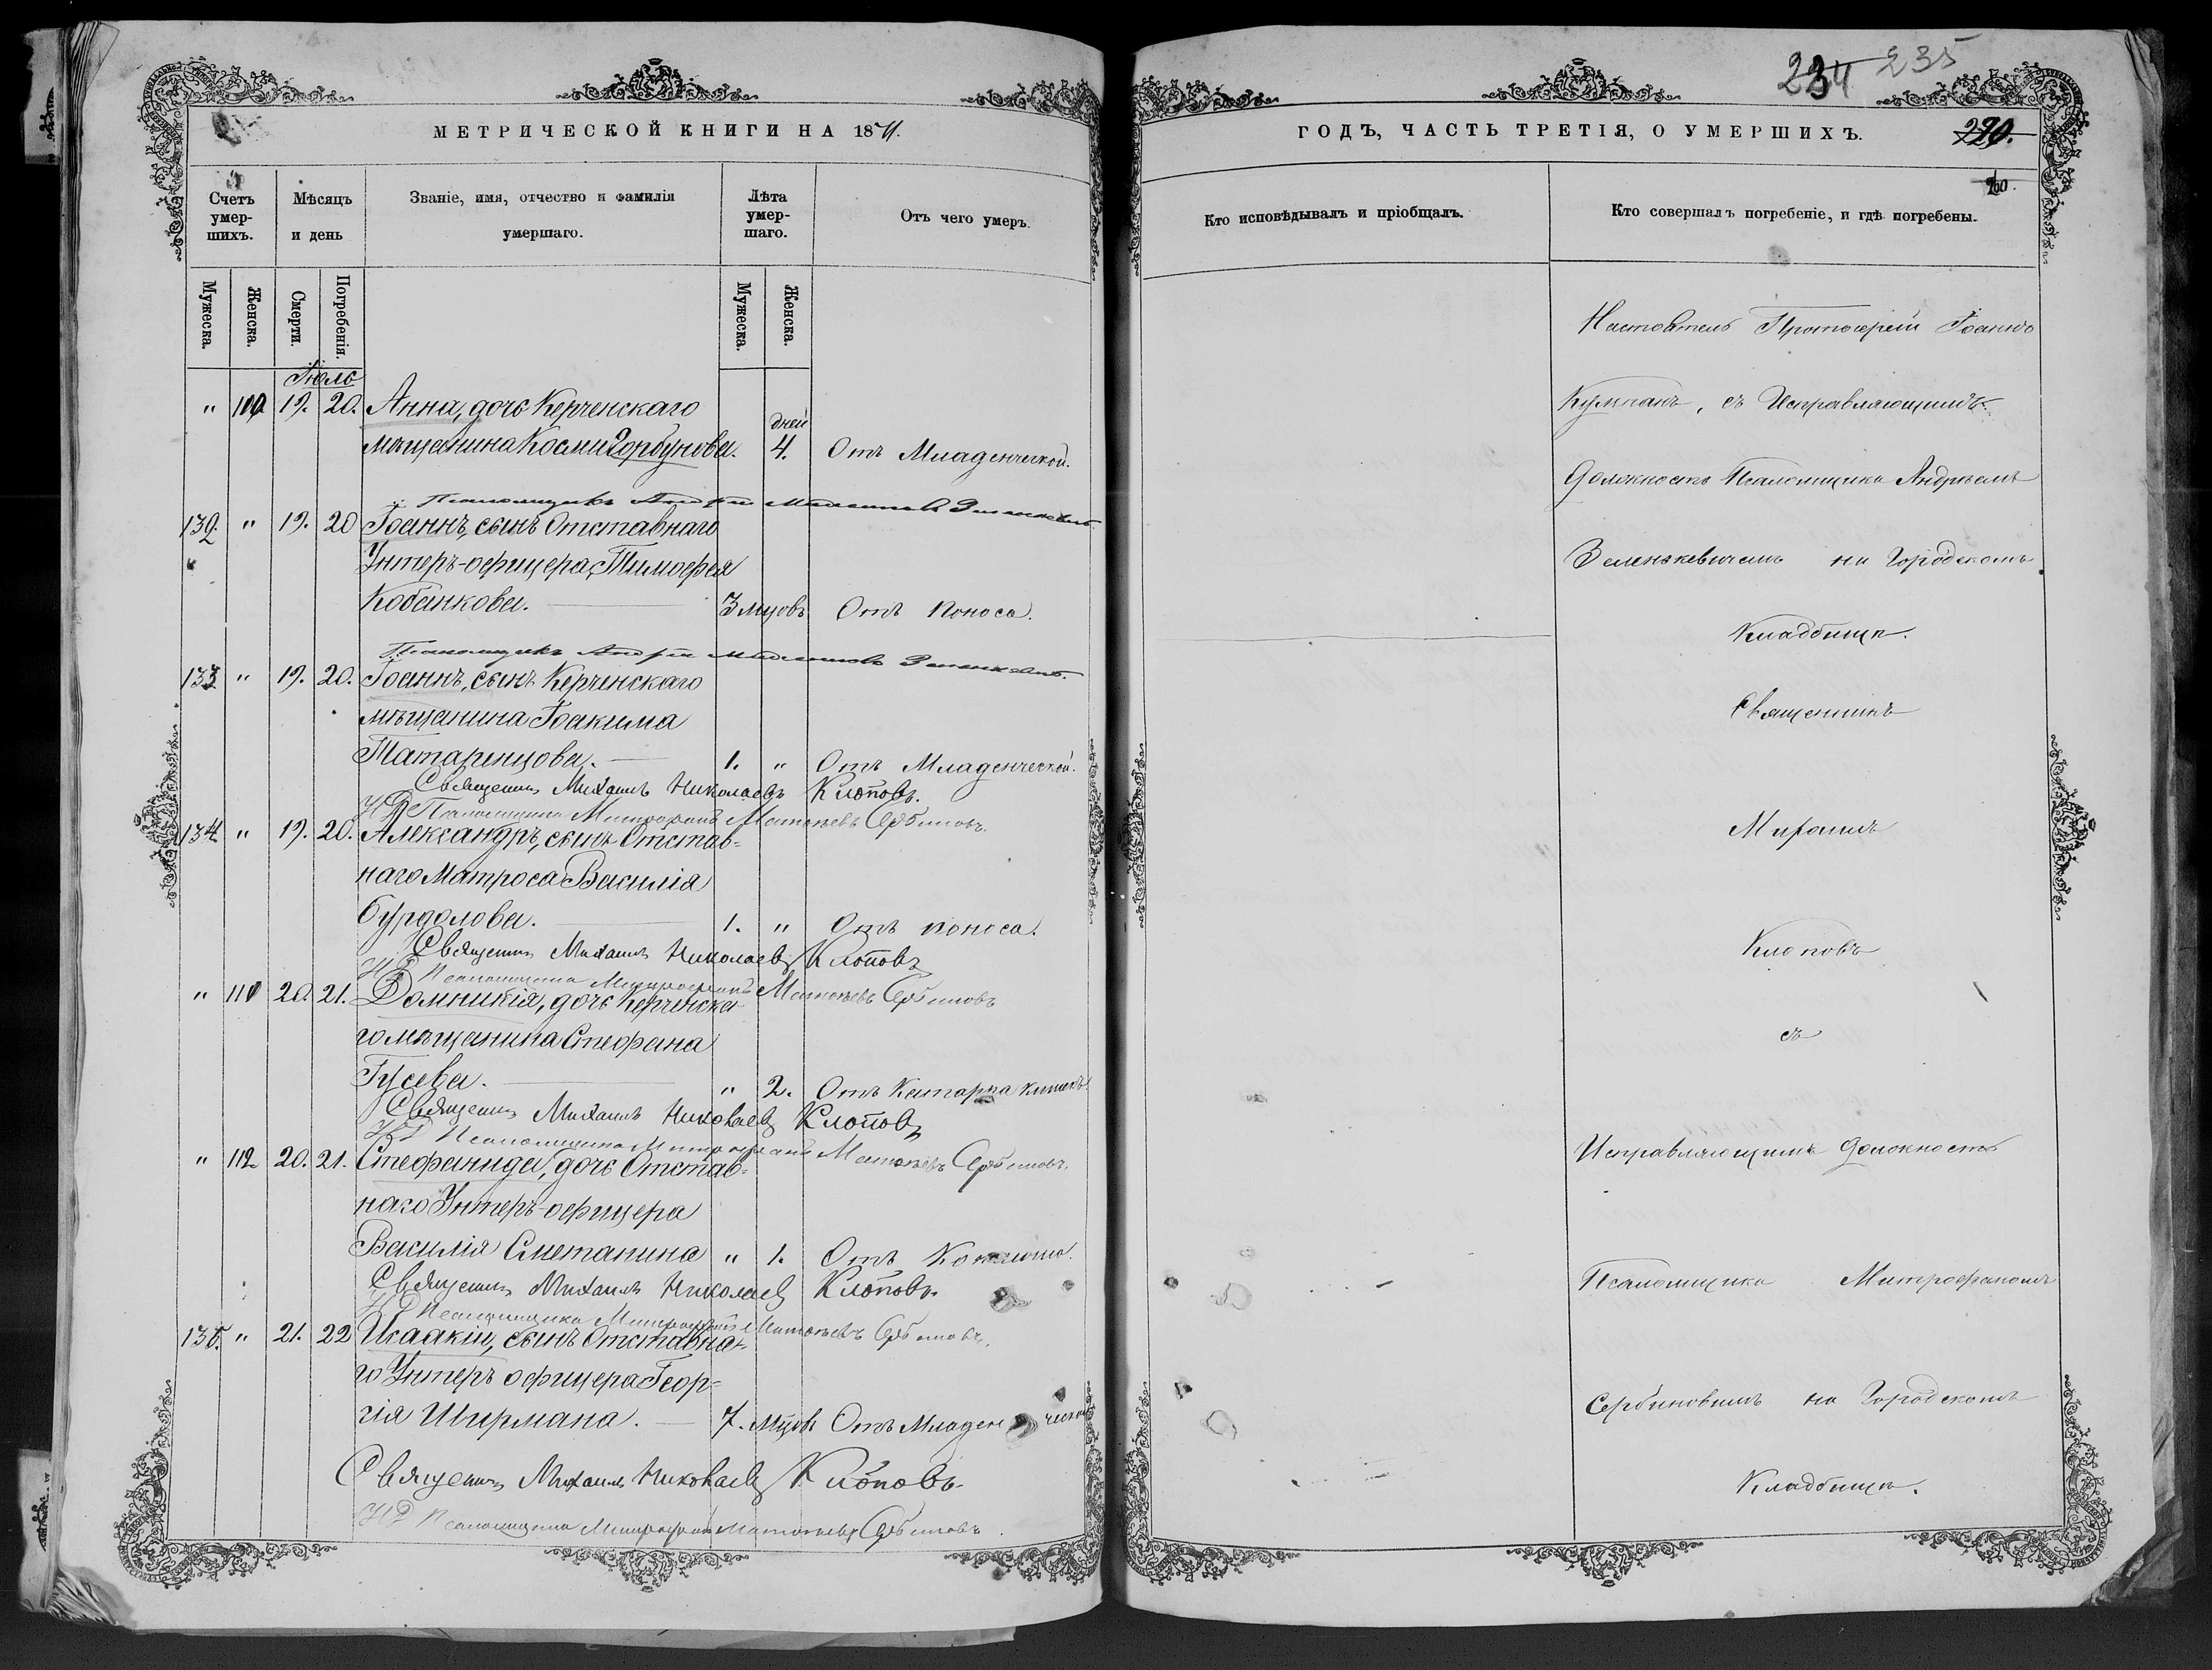 234 235
МЕТРИЧЕСКОЙ КНИГИ НА 1871.
Счетъ умер-шихъ.
Мѣсяцъ и день
Званіе, имя, отчество и фамилія умершаго.
Лѣта умер-шаго.
Отъ чего умеръ.
Мужеска. Женска. Смерти. Погребенія. Мужеска. Женска.
Іюль
" 110 19. 20. Анна, дочь Керченскаго
мѣщанина Космы Горбунова. дней 4. Отъ Младенческой.
Псаломщикъ Андрей
132 " 19. 20 Іоаннъ, сынъ Отставнаго
Унтеръ-офицера, Тимофея
Кобанкова. 3 мцовъ Отъ поноса.
Псаломщикъ Андрей
133 " 19. 20. Іоаннъ, сынъ Керченскаго
мѣщанина Іоакима
Татаринцова. 1. " Отъ Младенческой.
Священникъ Михаилъ Николаевъ Клоповъ.
ИД Псаломщика Митрофанъ Матвѣевъ Сербиновъ.
134 " 19. 20. Александръ, сынъ Отстав=
наго Матроса Василія
Бурдолова. 1. " Отъ поноса.
Священникъ Михаилъ Николаевъ Клоповъ
ИД Псаломщика Митрофанъ Матвѣевъ Сербиновъ
" 111 20. 21. Домникія, дочь Керченска-
го мѣщанина Стефана
Гусева. " 2. Отъ Катарра кишекъ.
Священникъ Михаилъ Николаевъ Клоповъ
ИД Псаломщика Митрофанъ Матвѣевъ Сербиновъ.
" 112. 20. 21. Стефанида, дочь Отстав=
наго Унтеръ-офицера
Василія Сметанина " 1. Отъ Коклюша.
Священникъ Михаилъ Николаевъ Клоповъ
ИД Псаломщика Митрофанъ Матвѣевъ Сербиновъ.
135. " 21. 22 Исаакій, сынъ Отставна=
го Унтеръ офицера Геор=
гія Ширмана. 7. мцовъ Отъ Младенческой
Священникъ Михаилъ Николаевъ Клоповъ
ИД Псаломщика Митрофанъ Матвѣевъ Сербиновъ
ГОДЪ, ЧАСТЬ ТРЕТІЯ, О УМЕРШИХЪ.
290.
Кто исповѣдывалъ и пріобщалъ.
Кто совершалъ погребеніе, и гдѣ погребены.
Настоятель Протоіерей Іоаннъ
Кумпанъ, съ Исправляющимъ
должность Псаломщика Андреемъ
Зеленкевичемъ на Городскомъ
Кладбищѣ.
Священникъ
Михаилъ
Клоповъ
съ
Исправляющимъ должность
Псаломщика Митрофаномъ
Сербиновымъ на Городскомъ
Кладбищѣ.